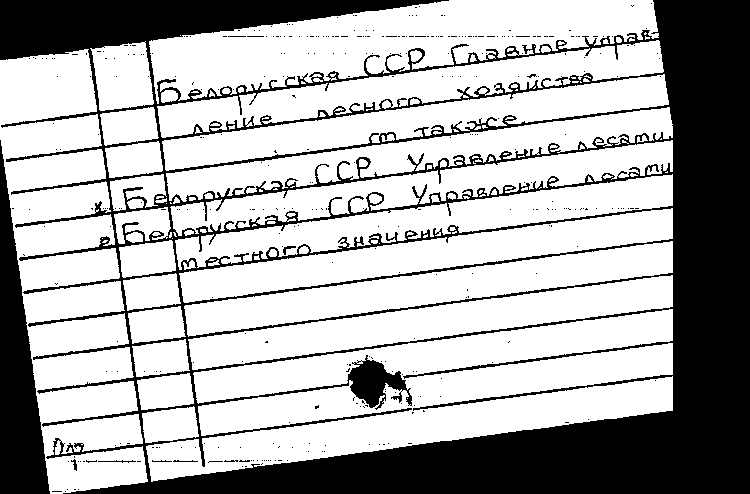 Белорусская ССР. Главное управ-
ление лесного хозяйства
см. также
х. Белорусская ССР. Управление лесами.
2. Белорусская ССР. Управление лесами
местного значения